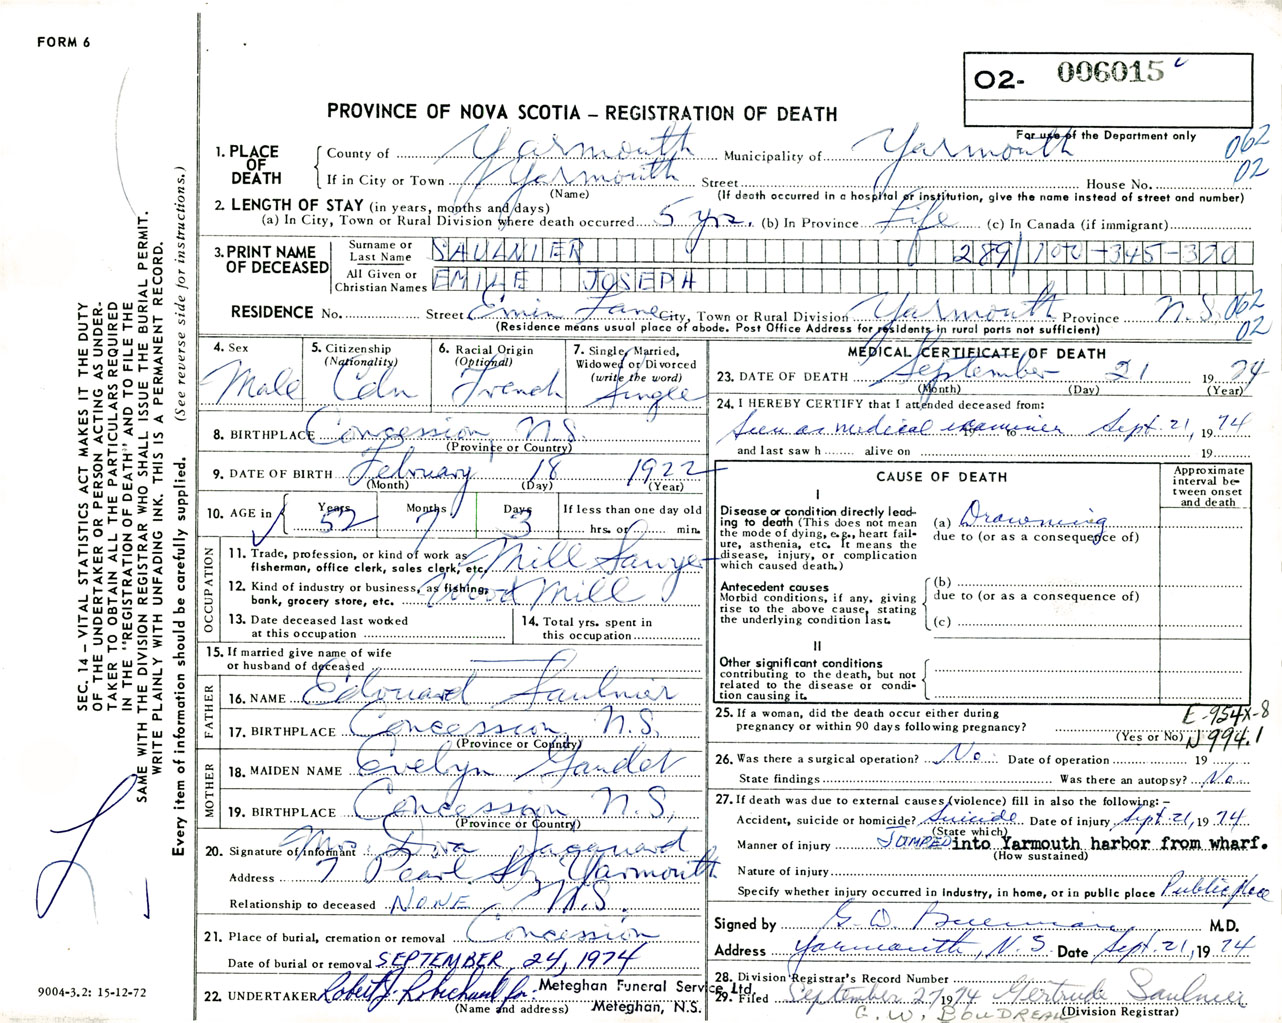 FORM 6
O2- 006015
PROVINCE OF NOVA SCOTIA – REGISTRATION OF DEATH
For use of the Department only
062
02
1. PLACE OF DEATH
County of Yarmouth Municipality of Yarmouth
If in City or Town Yarmouth Street House No.
(Name) (If death occurred in a hospital or institution, give the name instead of street and number)
2. LENGTH OF STAY (in years, months and days)
(a) In City, Town or Rural Division where death occurred 5 yrs. (b) In Province Life (c) In Canada (if immigrant)
3. PRINT NAME OF DECEASED
Surname or Last Name SAULNIER 289/100-345-370
All Given or Christian Names EMILE JOSEPH
RESIDENCE No. Street Emin Lane City, Town or Rural Division Yarmouth Province N.S. 062
(Residence means usual place of abode. Post Office Address for residents in rural parts not sufficient) 02
4. Sex 5. Citizenship (Nationality) 6. Racial Origin (Optional) 7. Single, Married, Widowed or Divorced (write the word)
Male Cdn French Single
8. BIRTHPLACE Concession N.S.
(Province or Country)
9. DATE OF BIRTH February 18 1922
(Month) (Day) (Year)
10. AGE in Years Months Days If less than one day old
52 7 3 hrs. or min.
OCCUPATION
11. Trade, profession, or kind of work as Mill Sawyer
fisherman, office clerk, sales clerk, etc.
12. Kind of industry or business, as fishing, Wood Mill
bank, grocery store, etc.
13. Date deceased last worked at this occupation
14. Total yrs. spent in this occupation
15. If married give name of wife
or husband of deceased
FATHER
16. NAME Edouard Saulnier
17. BIRTHPLACE Concession N.S.
(Province or Country)
MOTHER
18. MAIDEN NAME Evelyn Gaudet
19. BIRTHPLACE Concession N.S.
(Province or Country)
20. Signature of informant Mrs. Diva Jacquard
Address 7 Pearl St, Yarmouth
Relationship to deceased NONE N.S.
21. Place of burial, cremation or removal Concession
Date of burial or removal SEPTEMBER 24, 1974
22. UNDERTAKER Robert J. Robichaud for Meteghan Funeral Service Ltd.
(Name and address) Meteghan, N.S.
MEDICAL CERTIFICATE OF DEATH
23. DATE OF DEATH September 21 1974
(Month) (Day) (Year)
24. I HEREBY CERTIFY that I attended deceased from:
Seen as medical examiner to Sept. 21, 1974
and last saw h alive on 19
CAUSE OF DEATH
Approximate interval between onset and death
I
Disease or condition directly leading to death (This does not mean the mode of dying, e.g., heart failure, asthenia, etc. It means the disease, injury, or complication which caused death.)
(a) Drowning
due to (or as a consequence of)
Antecedent causes
Morbid conditions, if any, giving rise to the above cause, stating the underlying condition last.
(b)
due to (or as a consequence of)
(c)
II
Other significant conditions
contributing to the death, but not related to the disease or condition causing it.
25. If a woman, did the death occur either during
pregnancy or within 90 days following pregnancy?
(Yes or No)
E-954X-8
N994.1
26. Was there a surgical operation? No Date of operation 19
State findings Was there an autopsy? No
27. If death was due to external causes (violence) fill in also the following:–
Accident, suicide or homicide? Suicide Date of injury Sept. 21, 1974
(State which)
Manner of injury JUMPED into Yarmouth harbor from wharf.
(How sustained)
Nature of injury
Specify whether injury occurred in industry, in home, or in public place Public place
Signed by G. D. M.D.
Address Yarmouth, N.S. Date Sept. 21, 1974
28. Division Registrar's Record Number
29. Filed September 27 1974 Gertrude Saulnier
G. W. BOUDREAU (Division Registrar)
SEC. 14 – VITAL STATISTICS ACT MAKES IT THE DUTY
OF THE UNDERTAKER OR PERSON ACTING AS UNDER-
TAKER TO OBTAIN ALL THE PARTICULARS REQUIRED
IN THE "REGISTRATION OF DEATH" AND TO FILE THE
SAME WITH THE DIVISION REGISTRAR WHO SHALL ISSUE THE BURIAL PERMIT.
WRITE PLAINLY WITH UNFADING INK. THIS IS A PERMANENT RECORD.
Every item of information should be carefully supplied. (See reverse side for instructions.)
9004-3.2: 15-12-72